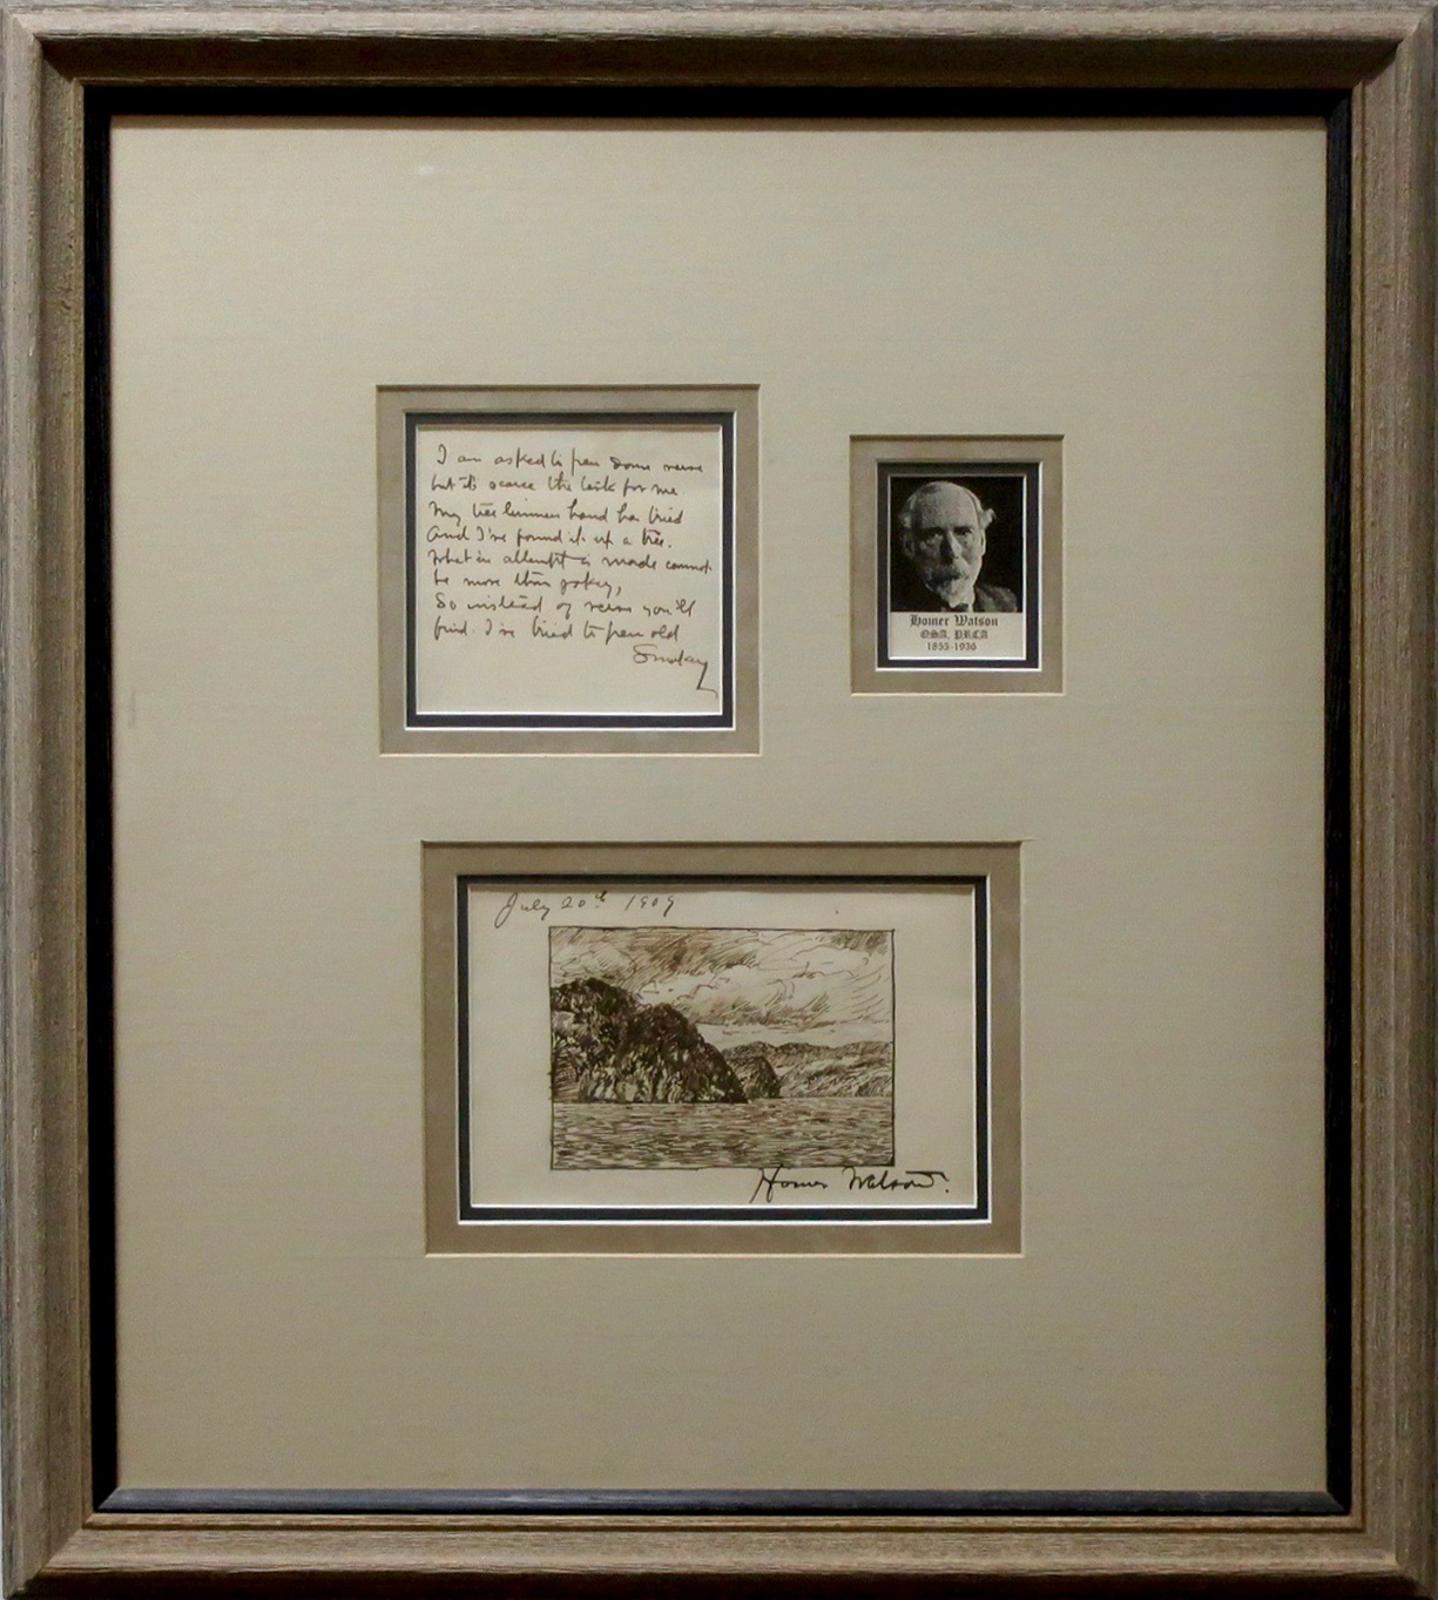 I am asked to pen some verse
but its scarce the task for me.
My hand has tried
And I've found it up a tree.
What in attempt is made cannot
be more than pokey,
So instead of verse you'll
find I've tried to pen old
Smokey
Homer Watson
OSA, PRCA
1855-1936
July 20th 1909
Homer Watson.